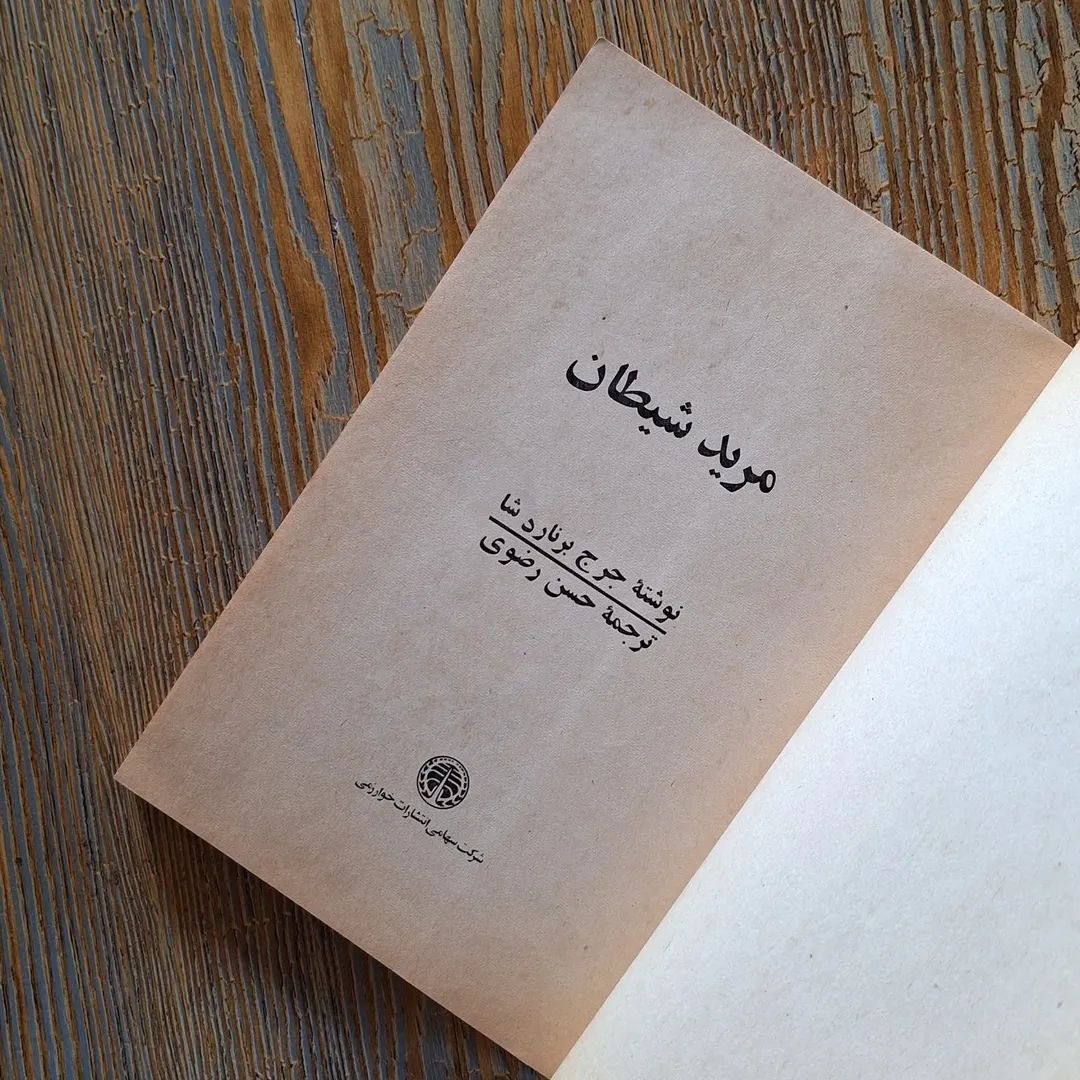 مرید شیطان
نوشتهٔ جرج برنارد شا
ترجمهٔ حسن رضوی
شرکت سهامی انتشارات خوارزمی